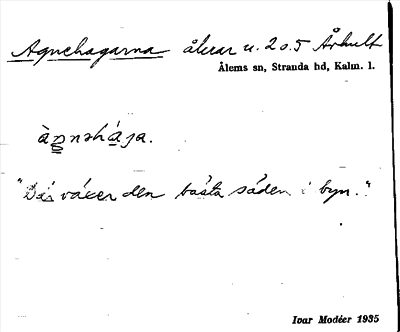 Agnehagarna åkrar u. 2 o. 5 Århult
Ålems sn, Stranda hd, Kalm. l.
àŋnəhága.
"Där växer den bästa säden i byn."
Ivar Modéer 1935